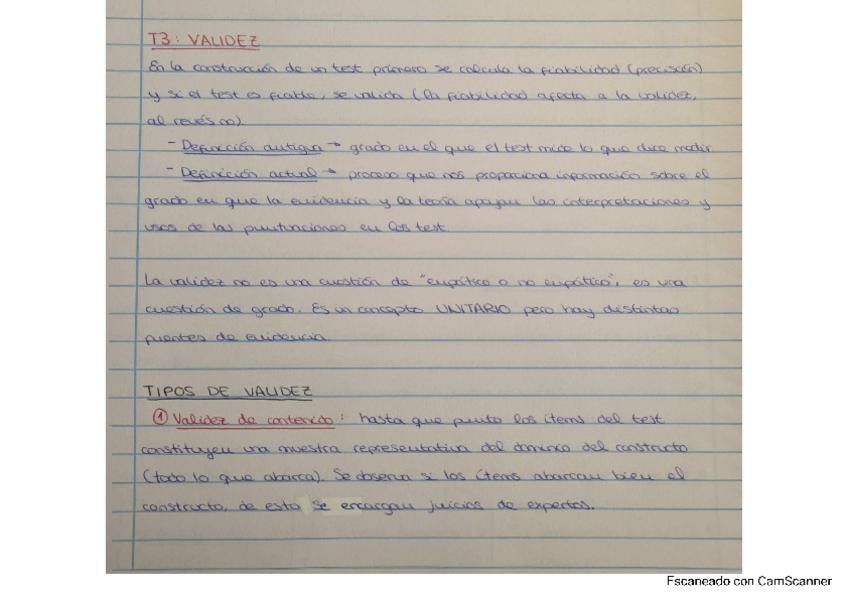 T3: VALIDEZ
En la construcción de un test primero se calcula la fiabilidad (precisión)
y si el test es fiable, se valida (la fiabilidad afecta a la validez,
al revés no).
- Definición antigua → grado en el que el test mide lo que dice medir
- Definición actual → proceso que nos proporciona información sobre el
grado en que la evidencia y la teoría apoyan las interpretaciones y
usos de las puntuaciones en los test.
La validez no es una cuestión de "
o no
", es una
cuestión de grado. Es un concepto UNITARIO pero hay distintas
fuentes de evidencia.
TIPOS DE VALIDEZ
① Validez de contenido: hasta que punto los ítems del test
constituyen una muestra representativa del dominio del constructo
(todo lo que abarca). Se observa si los ítems abarcan bien el
constructo, de esto se encargan juicios de expertos.
Escaneado con CamScanner